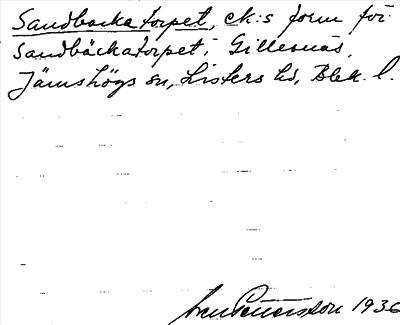 Sandbacka torpet, ek:s form för
Sandbäckatorpet, Gillesnäs,
Jämshögs sn, Listers hd, Blek. l.
Pettersson 1936